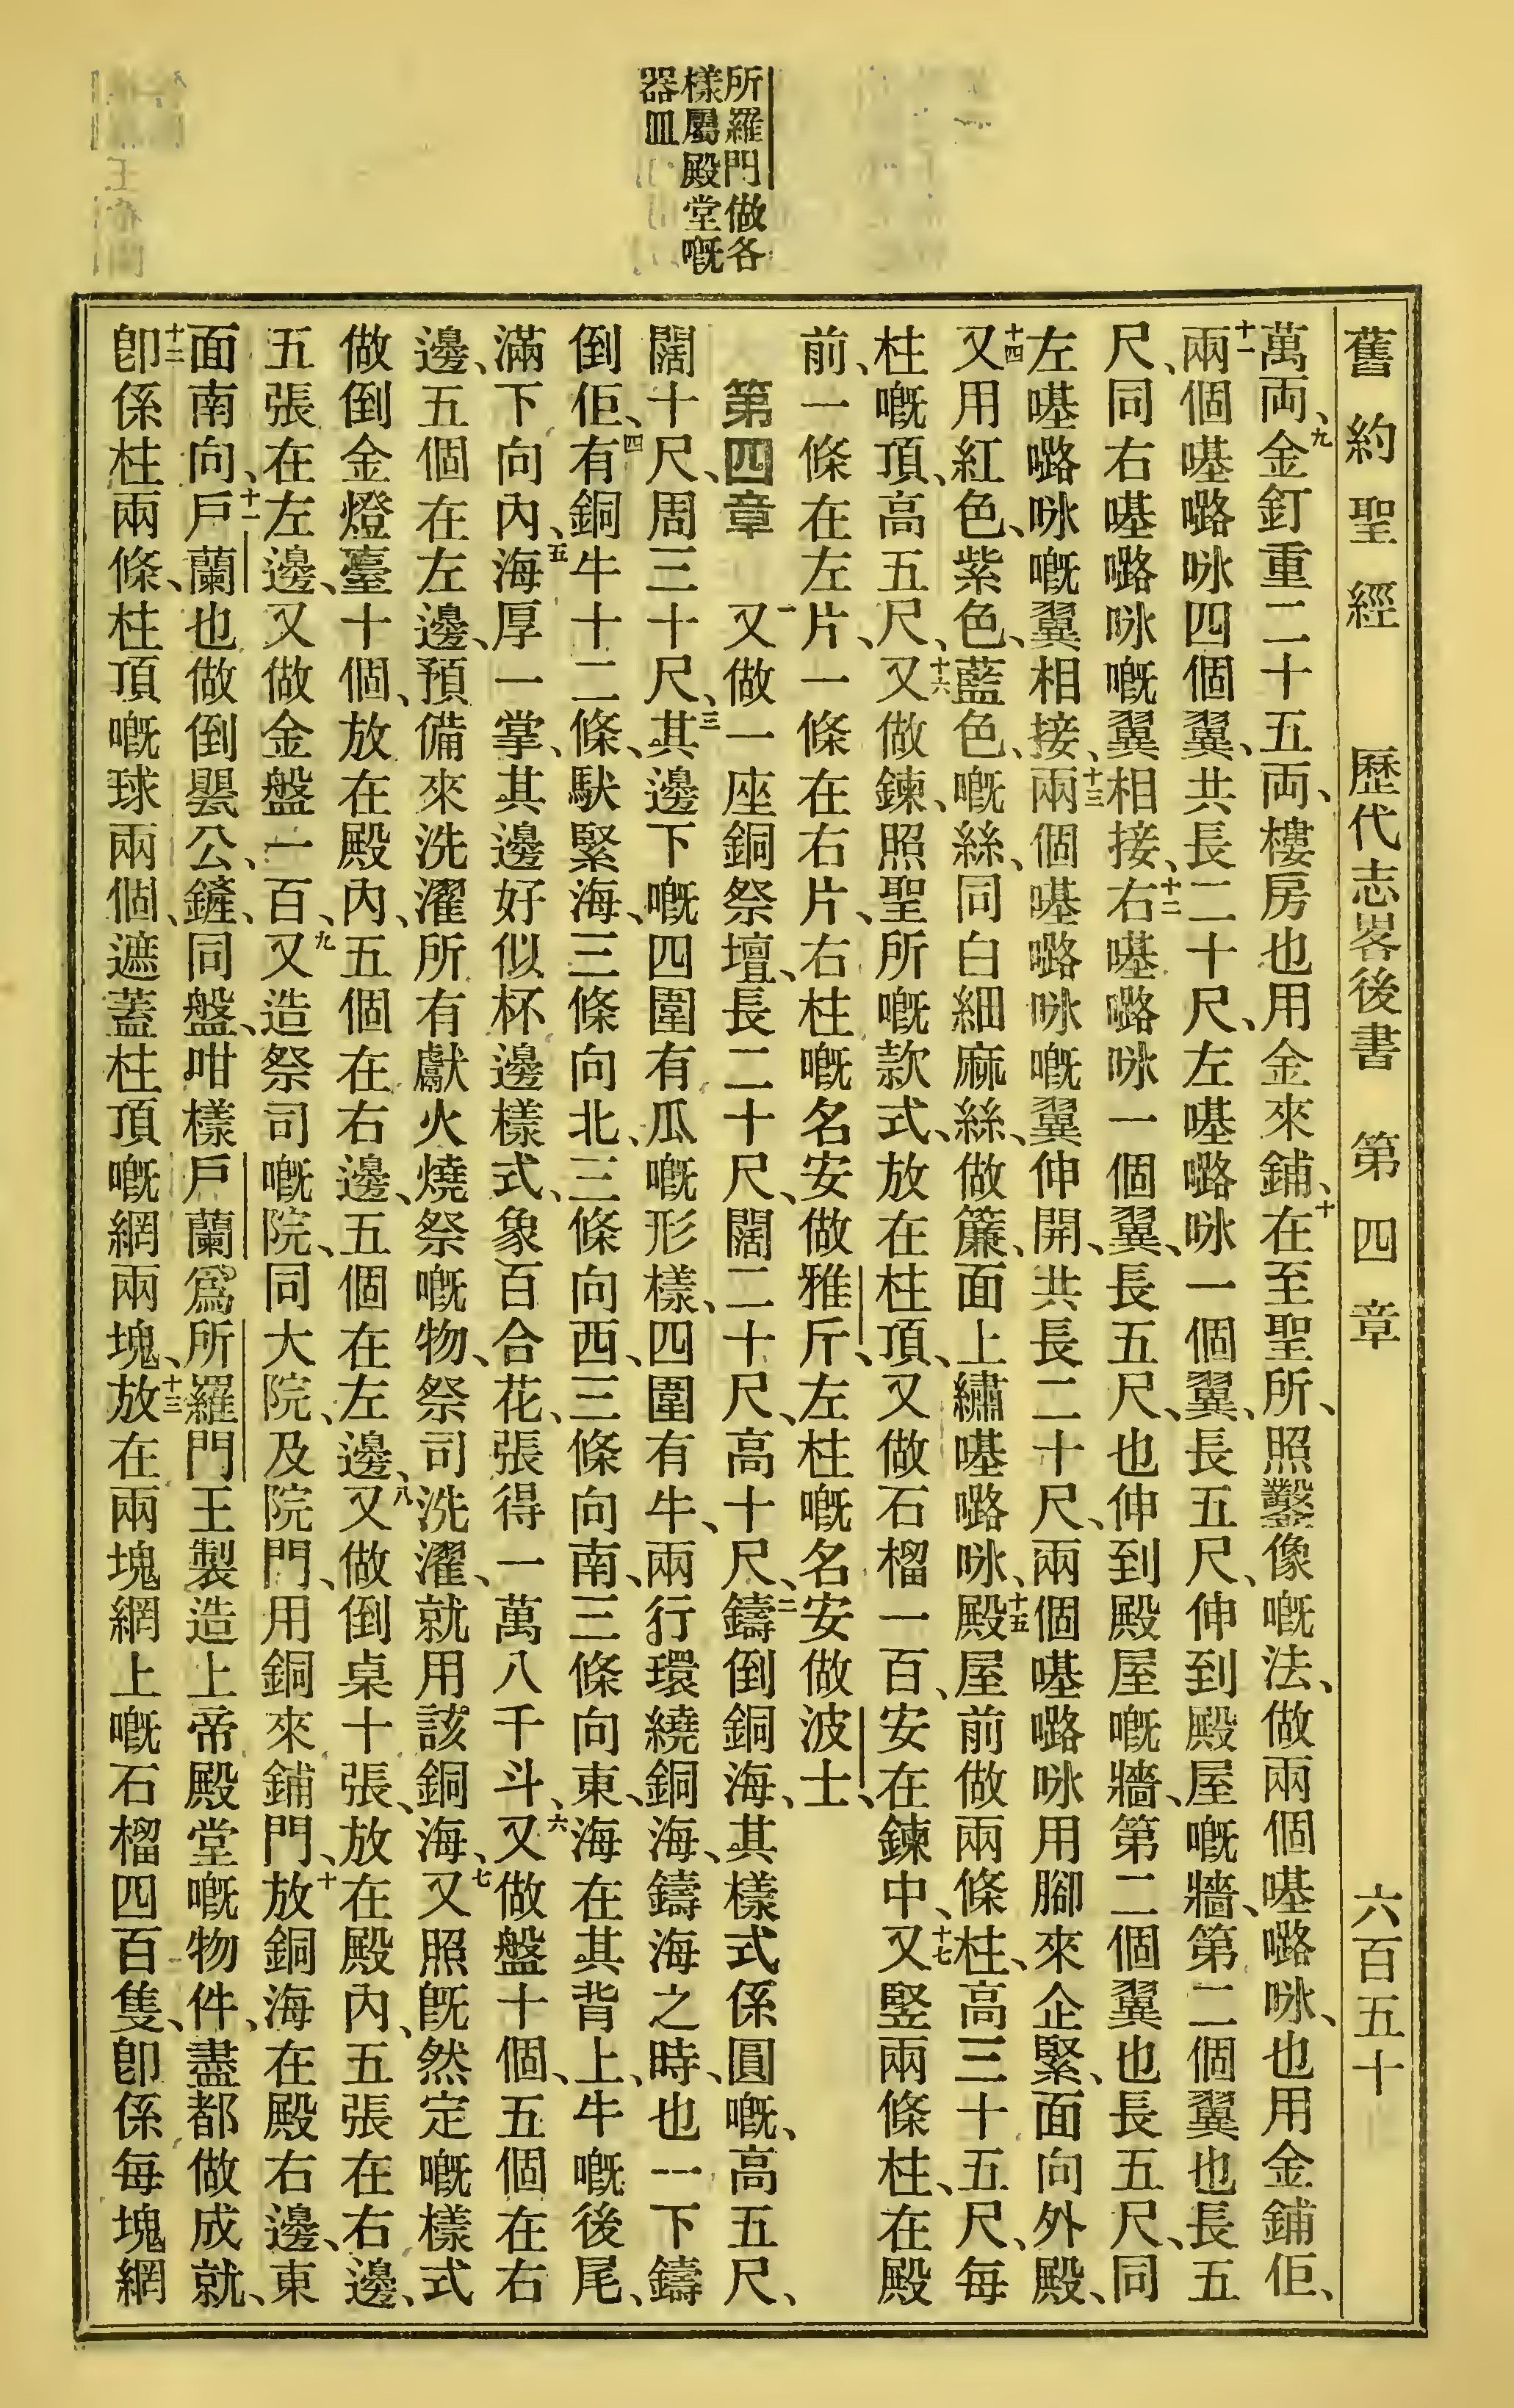 所羅門做各
樣屬殿堂嘅
器皿
舊約聖經 歷代志畧後書 第四章 六百五十
萬両、九金釘重二十五両、樓房也用金來鋪、十在至聖所、照鑿像嘅法、做兩個𠼻嚕咏、也用金鋪佢、
十一兩個𠼻嚕咏四個翼、共長二十尺、左𠼻嚕咏一個翼、長五尺、伸到殿屋嘅牆、第二個翼也長五
尺、同右𠼻嚕咏嘅翼相接、十二右𠼻嚕咏一個翼、長五尺、也伸到殿屋嘅牆、第二個翼也長五尺、同
左𠼻嚕咏嘅翼相接、十三兩個𠼻嚕咏嘅翼伸開、共長二十尺、兩個𠼻嚕咏用腳來企緊、面向外殿、
十四又用紅色、紫色、藍色、嘅絲、同白細麻絲、做簾、面上繡𠼻嚕咏、十五殿屋前做兩條柱、高三十五尺、每
柱嘅頂、高五尺、十六又做鍊、照聖所嘅款式、放在柱頂、又做石榴一百、安在鍊中、十七又竪兩條柱、在殿
前、一條在左片、一條在右片、右柱嘅名安做雅斤、左柱嘅名安做波士、
第四章 一又做一座銅祭壇、長二十尺、闊二十尺、高十尺、二鑄倒銅海、其樣式係圓嘅、高五尺、
闊十尺、周三十尺、三其邊下嘅四圍有瓜嘅形樣、四圍有牛、兩行環繞銅海、鑄海之時、也一下鑄
倒佢、四有銅牛十二條、馱緊海、三條向北、三條向西、三條向南、三條向東、海在其背上、牛嘅後尾、
滿下向內、五海厚一掌、其邊好似杯邊樣式、象百合花、張得一萬八千斗、六又做盤十個、五個在右
邊、五個在左邊、預備來洗濯所有獻火燒祭嘅物、祭司洗濯、就用該銅海、七又照旣然定嘅樣式
做倒金燈臺十個、放在殿內、五個在右邊、五個在左邊、八又做倒桌十張、放在殿內、五張在右邊、
五張在左邊、又做金盤一百、九又造祭司嘅院、同大院、及院門、用銅來鋪門、十放銅海在殿右邊、東
面南向、十一戶蘭也做倒罌公、鏟、同盤、咁樣戶蘭爲所羅門王製造上帝殿堂嘅物件、盡都做成就、
十二卽係柱兩條、柱頂嘅球兩個、遮蓋柱頂嘅網兩塊、十三放在兩塊網上嘅石榴四百隻、卽係每塊網